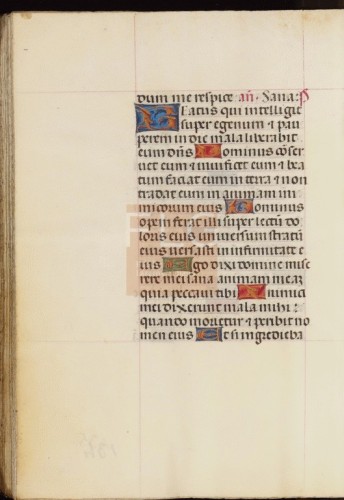 dum me respice añ · Sana: Ps
Beatus qui intelligit
super egenum ⁊ pau
perem in die mala liberabit
eum dñs Dominus cõser
uet eum ⁊ uiuificet eum ⁊ bea
tum faciat eum in terra ⁊ non
tradat eum in animam ini
micorum eius Dominus
opem ferat illi super lectũ do
loris eius uniuersum stratũ
eius uersasti in infirmitate e
ius Ego dixi domine mise
rere mei sana animam meaz
quia peccaui tibi Inimici
mei dixerunt mala mihi :
quando morietur ⁊ peribit no
men eius Et si ingredieba